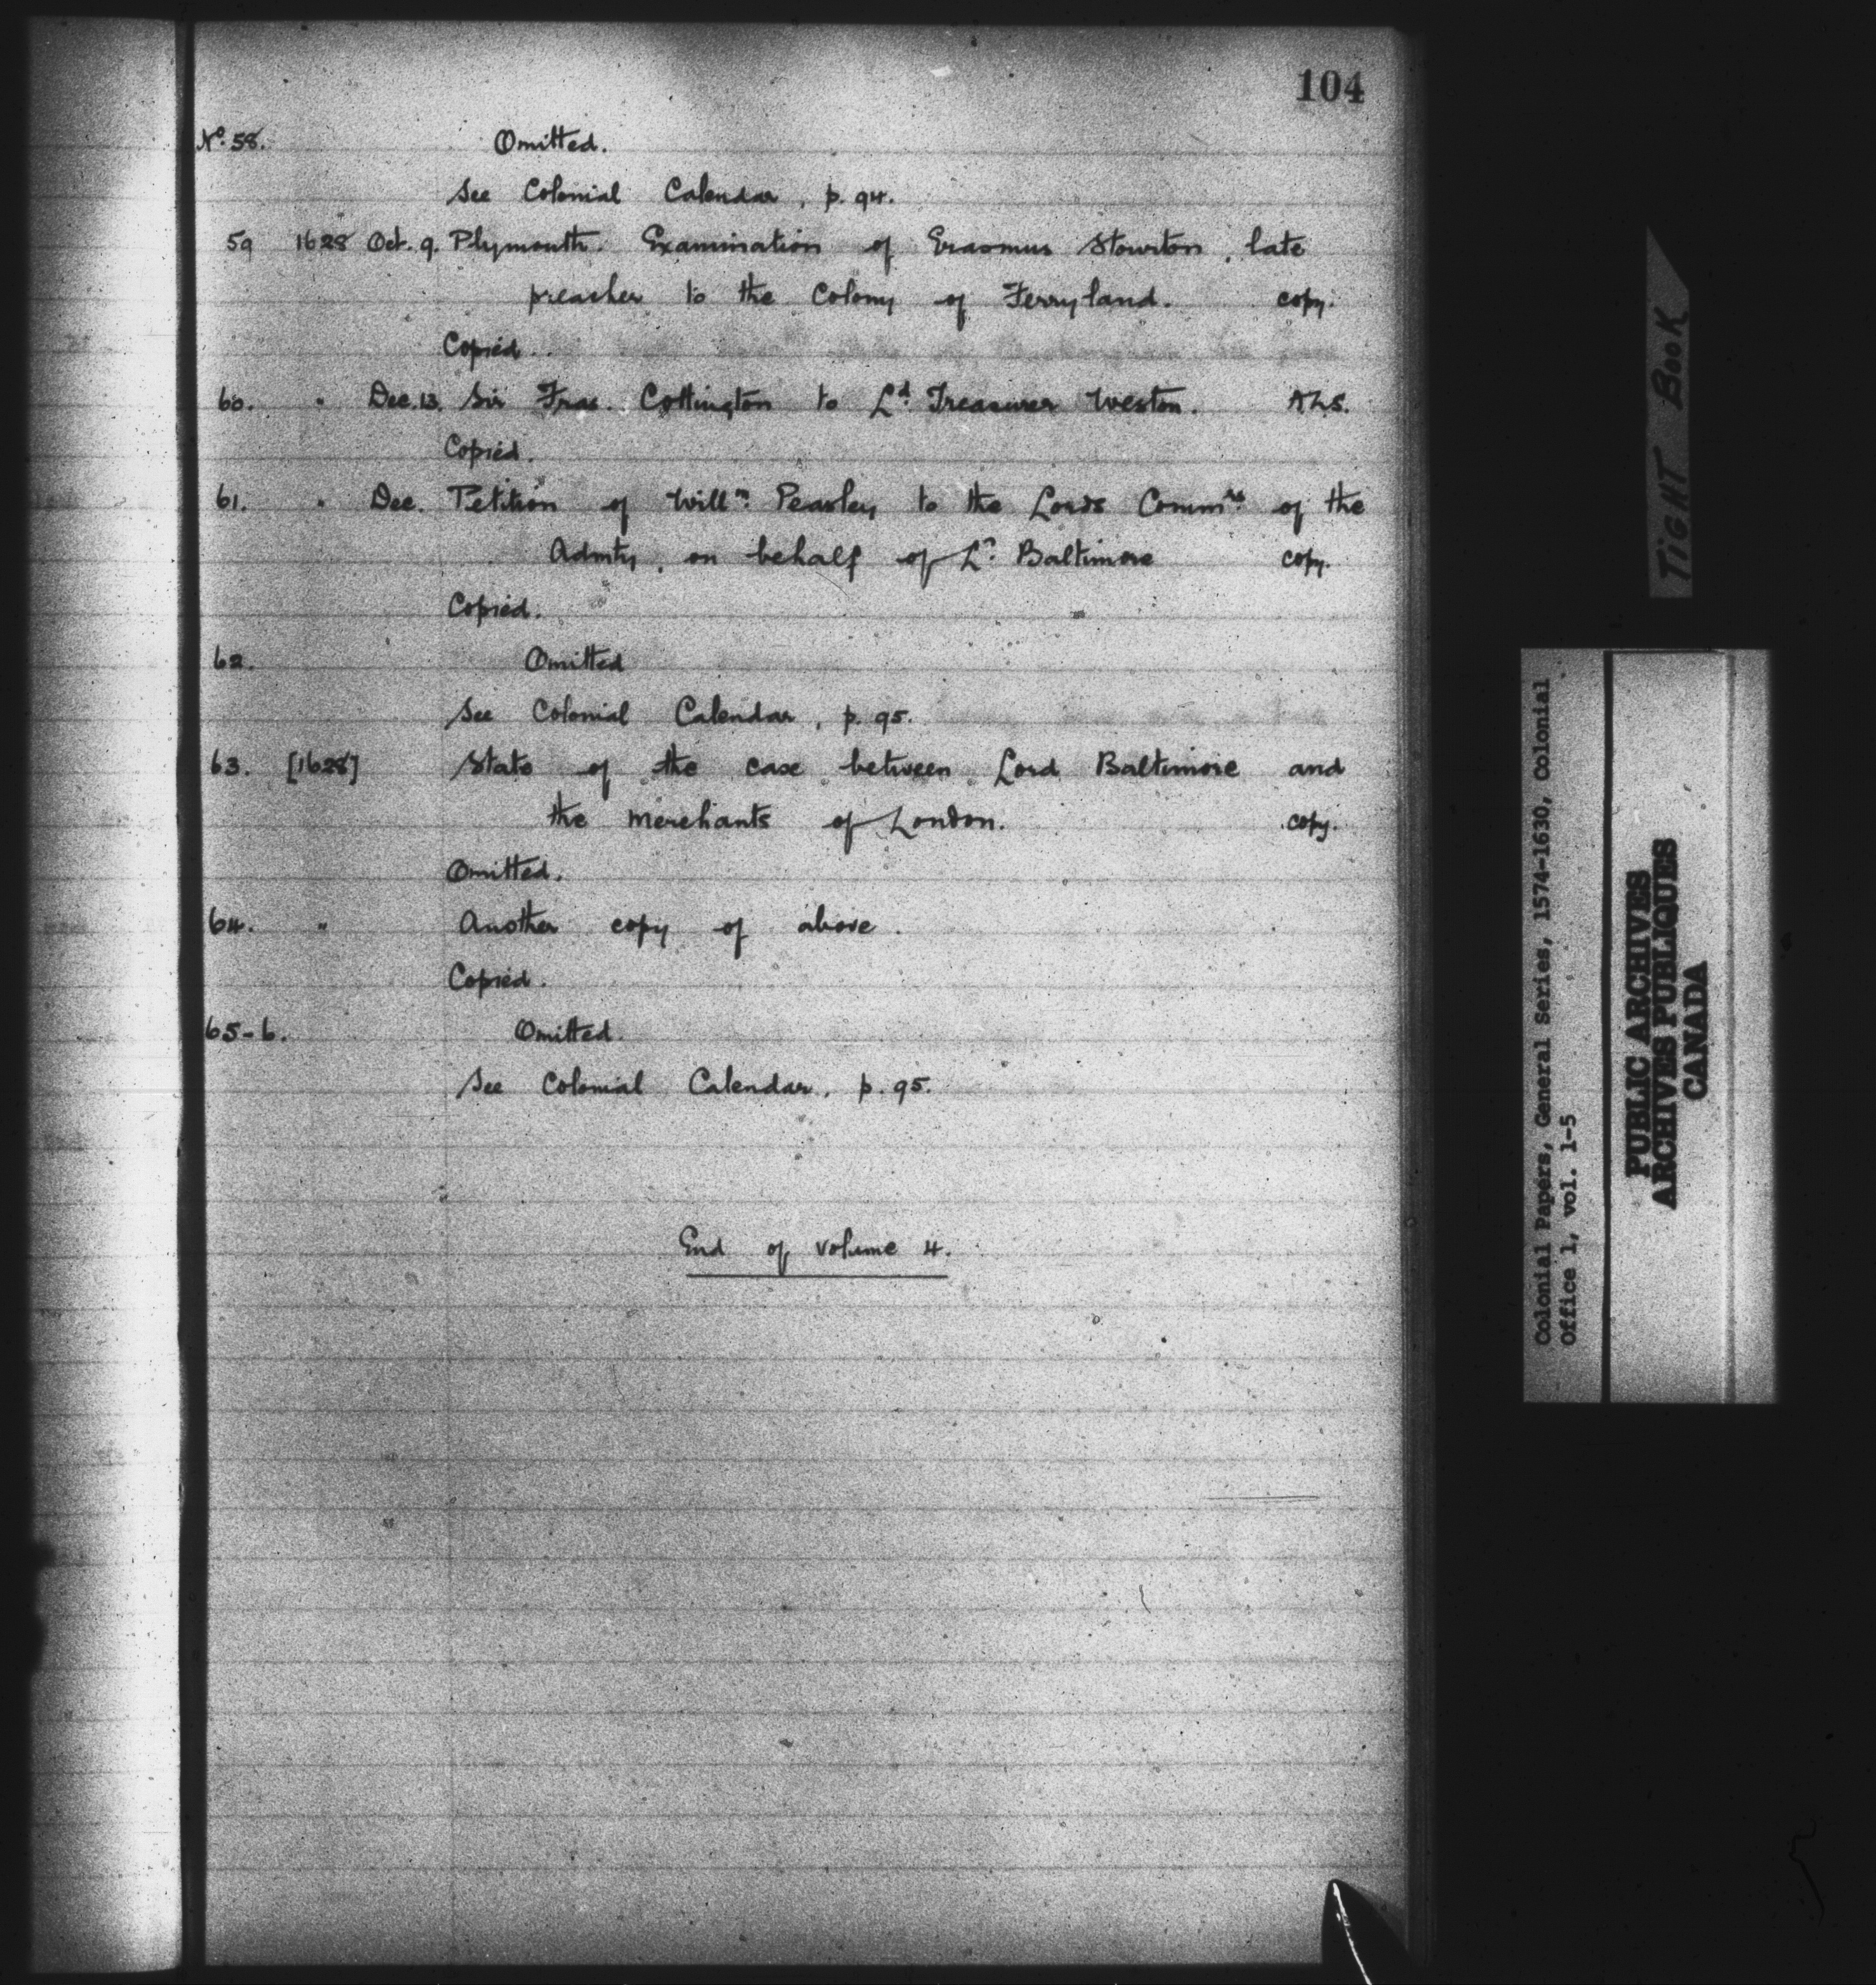 104
No. 58. Omitted.
See Colonial Calendar, p. 94.
59 1628 Oct. 9. Plymouth. Examination of Erasmus Stourton, late
preacher to the Colony of Ferryland. copy.
Copied.
60. " Dec. 13. Sir Fras. Cottington to Ld. Treasurer Weston. ALS.
Copied.
61. " Dec. Petition of Willm. Peasley to the Lords Commrs. of the
Admty, on behalf of Ld. Baltimore copy.
Copied.
62. Omitted
See Colonial Calendar, p. 95.
63. [1628] State of the case between Lord Baltimore and
the merchants of London. copy.
Omitted.
64. " Another copy of above.
Copied.
65-6. Omitted.
See Colonial Calendar, p. 95.
End of volume 4.
TIGHT BOOK
Colonial Papers, General Series, 1574-1630, Colonial
Office 1, vol. 1-5
PUBLIC ARCHIVES
ARCHIVES PUBLIQUES
CANADA